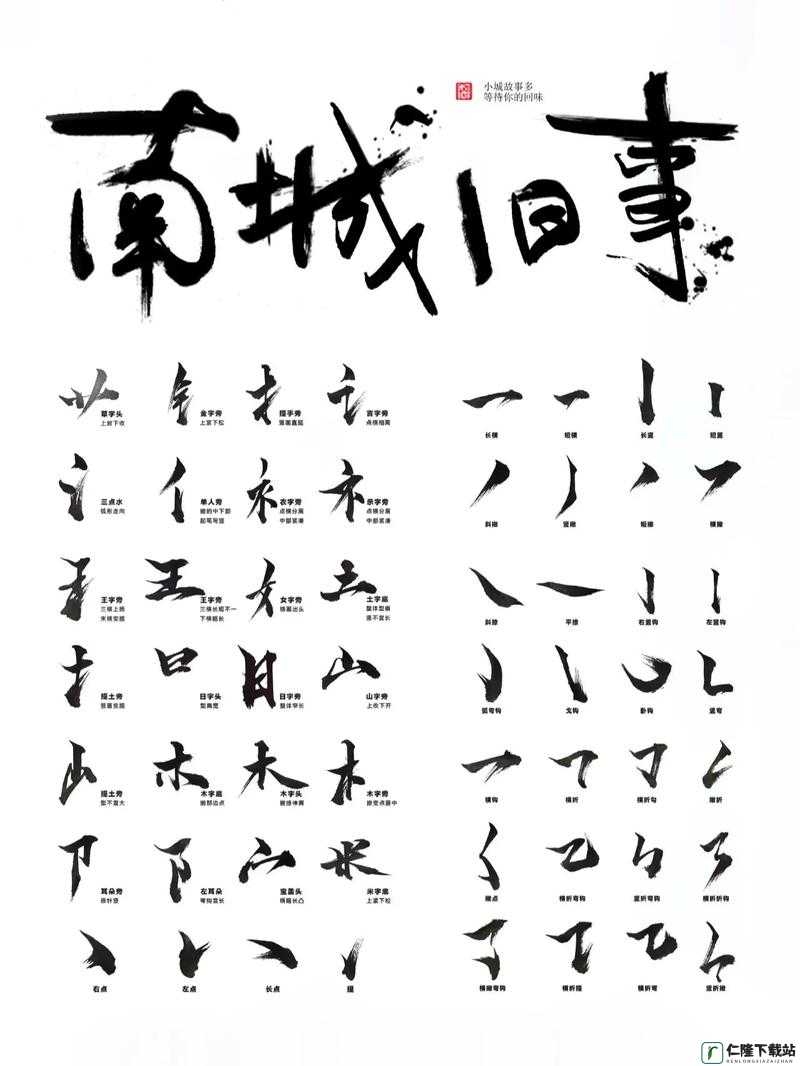 南城旧事
小城故事多
等待你的回味
草字头
上封下收
金字旁
上紧下松
提手旁
言字旁
点横相离
三点水
弧形走向
单人旁
撇的中下部
起笔写竖
衣字旁
点横分离
中部紧凑
示字旁
点横分离
中部紧凑
王字旁
三横上扬
末横变提
王字旁
三横长短不一
下横略长
女字旁
横画出头
土字底
整体型扁
竖不宜长
提土旁
竖画变提
日字头
型高宽
日字旁
整体窄长
山字旁
上收下开
提土旁
型不宜大
木字底
撇部边点
木字头
撇捺伸展
木字旁
捺变点居中
耳朵旁
左耳朵
弯钩宜长
宝盖头
横超长凸
米字底
上紧下松
右点
左点
长点
提
长横
短横
长竖
短竖
斜撇
竖撇
短撇
横撇
斜捺
平捺
右竖钩
左竖钩
弧弯钩
戈钩
卧钩
竖弯
横钩
横折
横折勾
撇折
撇点
横折弯钩
竖折弯钩
横折折钩
横撇弯钩
横折提
横折弯
竖折撇
仁隆下载站
RENLONGXIAZAIZHAN